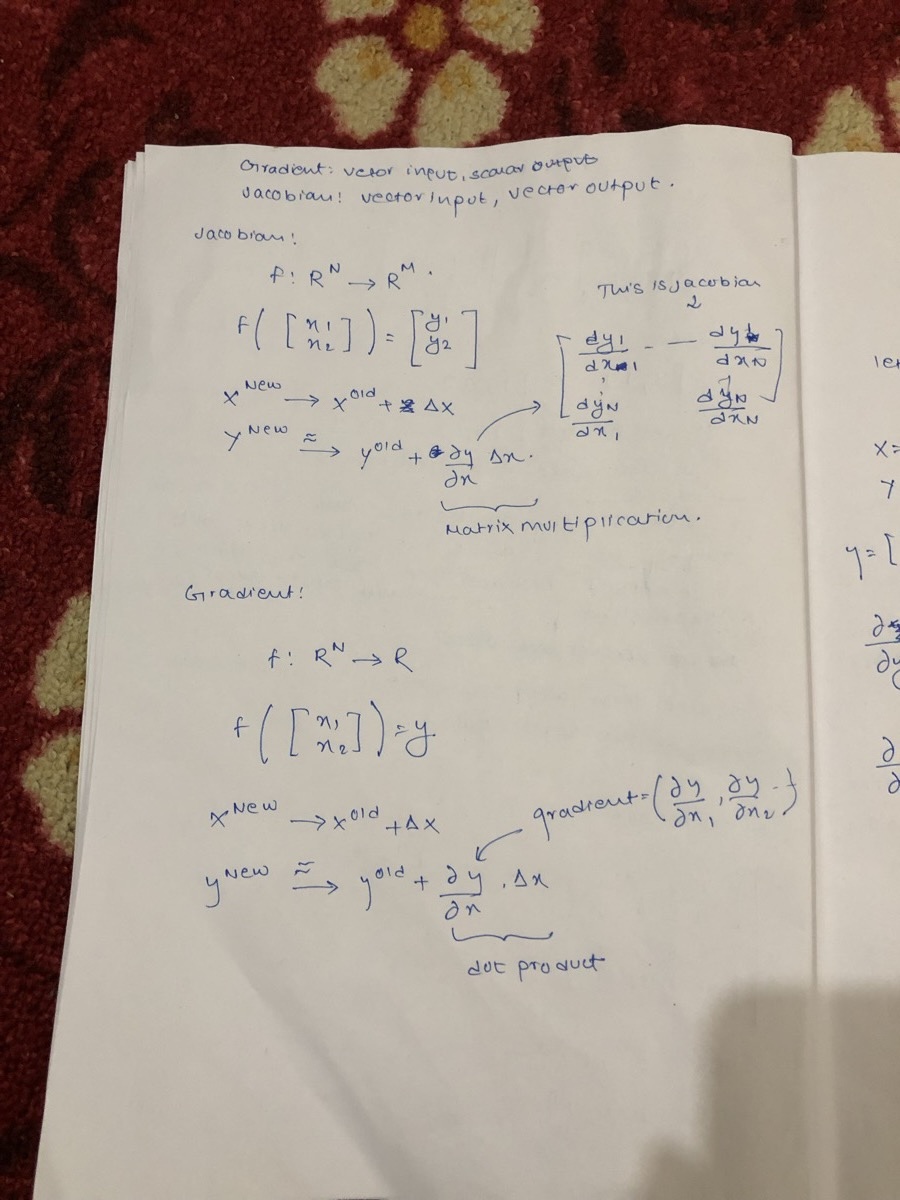 Gradient: vector input, scalar output
Jacobian: vector input, vector output.
Jacobian:
f: R^N → R^M.
This is jacobian
f([x1 x2]) = [y1 y2]
[dy1/dx1 - — dy1/dxN
dyN/dx1 dyN/dxN]
x^New → x^old + Δx
y^New ≈→ y^old + ∂y/∂x Δx.
Matrix multiplication.
Gradient:
f: R^N → R
f([x1 x2]) = y
x^New → x^old + Δx
gradient = (∂y/∂x1, ∂y/∂x2 -)
y^New ≈→ y^old + ∂y/∂x . Δx
dot product
x=
y
y=[
∂